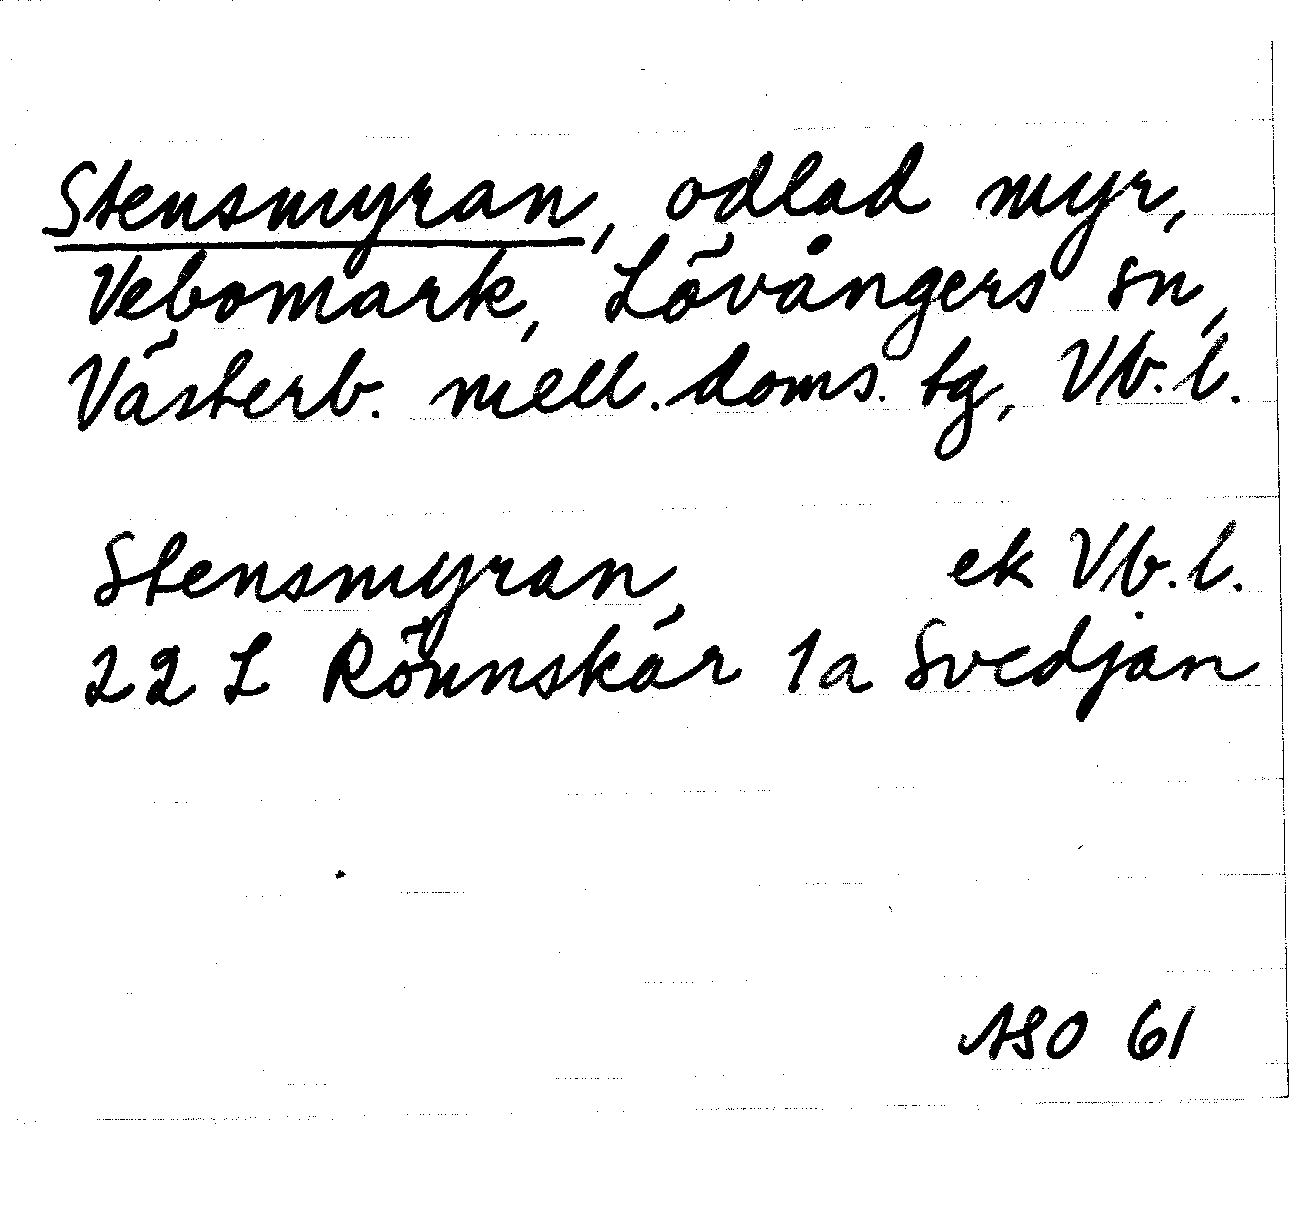 Stensmyran, odlad myr,
Vebomark, Lövångers sn,
Västerb. mell. doms. tg, Vb. l.
Stensmyran, ek Vb. l.
22 L Rönnskär 1a Svedjan
ASO 61